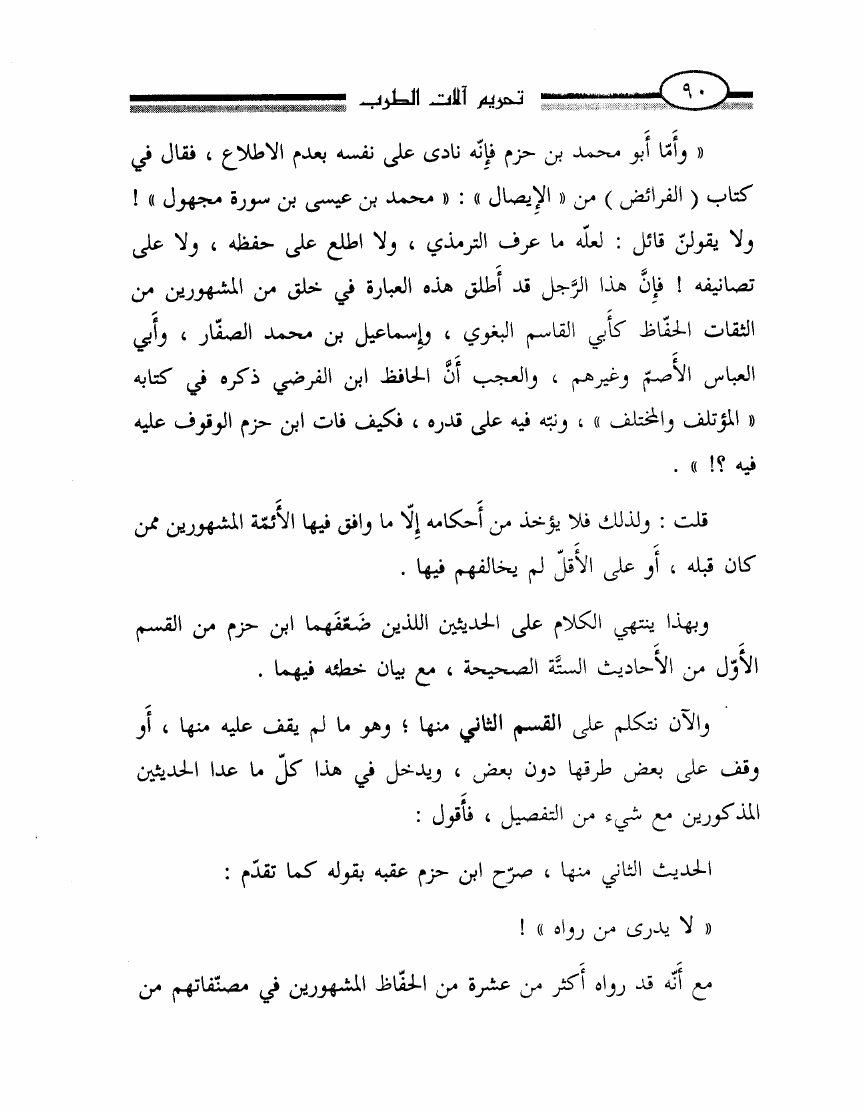 ٩٠
تحريم آلات الطرب
« وأمّا أبو محمد بن حزم فإنّه نادى على نفسه بعدم الاطلاع ، فقال في
كتاب ( الفرائض ) من « الإيصال » : « محمد بن عيسى بن سورة مجهول » !
ولا يقولنّ قائل : لعلّه ما عرف الترمذي ، ولا اطلع على حفظه ، ولا على
تصانيفه ! فإنَّ هذا الرَّجل قد أطلق هذه العبارة في خلق من المشهورين من
الثقات الحفّاظ كأبي القاسم البغوي ، وإسماعيل بن محمد الصفّار ، وأبي
العباس الأصمّ وغيرهم ، والعجب أنَّ الحافظ ابن الفرضي ذكره في كتابه
« المؤتلف والمختلف » ، ونبّه فيه على قدره ، فكيف فات ابن حزم الوقوف عليه
فيه ؟! » .
قلت : ولذلك فلا يؤخذ من أحكامه إلّا ما وافق فيها الأئمّة المشهورين ممن
كان قبله ، أو على الأقلّ لم يخالفهم فيها .
وبهذا ينتهي الكلام على الحديثين اللذين ضَعّفَهما ابن حزم من القسم
الأوّل من الأحاديث الستَّة الصحيحة ، مع بيان خطئه فيهما .
والآن نتكلم على القسم الثاني منها ؛ وهو ما لم يقف عليه منها ، أو
وقف على بعض طرقها دون بعض ، ويدخل في هذا كلّ ما عدا الحديثين
المذكورين مع شيء من التفصيل ، فأقول :
الحديث الثاني منها ، صرّح ابن حزم عقبه بقوله كما تقدّم :
« لا يدرى من رواه » !
مع أنّه قد رواه أكثر من عشرة من الحفّاظ المشهورين في مصنّفاتهم من